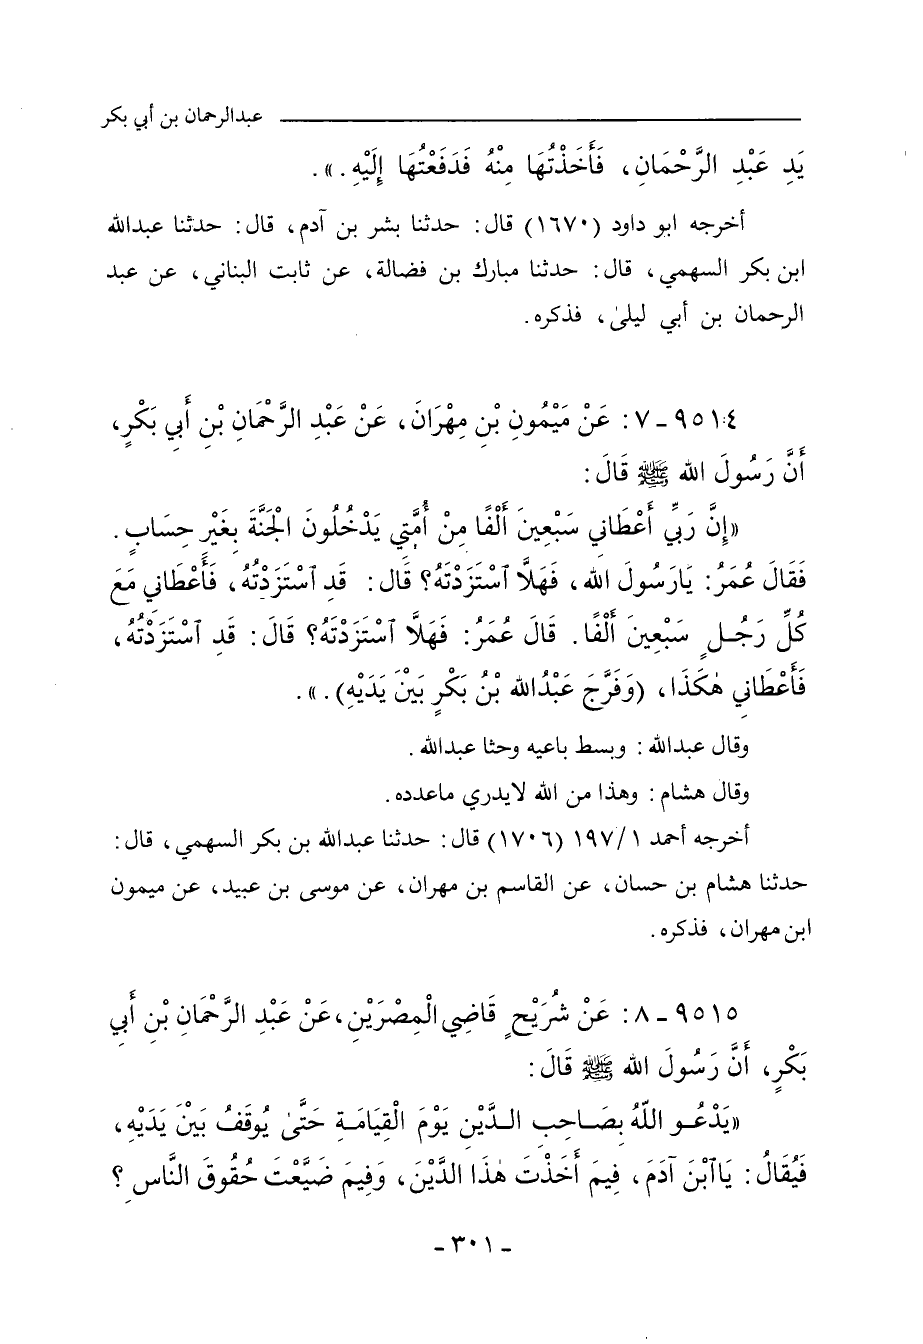 عبدالرحمان بن أبي بكر
يَدِ عَبْدِ الرَّحْمَانِ، فَأَخَذْتُهَا مِنْهُ فَدَفَعْتُهَا إِلَيْهِ.».
أخرجه ابو داود (١٦٧٠) قال: حدثنا بشر بن آدم، قال: حدثنا عبدالله
ابن بكر السهمي، قال: حدثنا مبارك بن فضالة، عن ثابت البناني، عن عبد
الرحمان بن أبي ليلىٰ، فذكره.
٩٥١٤ - ٧: عَنْ مَيْمُونِ بْنِ مِهْرَانَ، عَنْ عَبْدِ الرَّحْمَانِ بْنِ أَبِي بَكْرٍ،
أَنَّ رَسُولَ الله ﷺ قَالَ:
«إِنَّ رَبِّي أَعْطَانِي سَبْعِينَ أَلْفًا مِنْ أُمَّتِي يَدْخُلُونَ الْجَنَّةَ بِغَيْرِ حِسَابٍ.
فَقَالَ عُمَرُ: يَارَسُولَ الله، فَهَلَّا ٱسْتَزَدْتَهُ؟ قَالَ: قَدِ ٱسْتَزَدْتُهُ، فَأَعْطَانِي مَعَ
كُلِّ رَجُلٍ سَبْعِينَ أَلْفًا. قَالَ عُمَرُ: فَهَلَّا ٱسْتَزَدْتَهُ؟ قَالَ: قَدِ ٱسْتَزَدْتُهُ،
فَأَعْطَانِي هٰكَذَا، (وَفَرَّجَ عَبْدُالله بْنُ بَكْرٍ بَيْنَ يَدَيْهِ).».
وقال عبدالله: وبسط باعيه وحثا عبدالله.
وقال هشام: وهذا من الله لايدري ماعدده.
أخرجه أحمد ١/١٩٧ (١٧٠٦) قال: حدثنا عبدالله بن بكر السهمي، قال:
حدثنا هشام بن حسان، عن القاسم بن مهران، عن موسى بن عبيد، عن ميمون
ابن مهران، فذكره.
٩٥١٥ - ٨: عَنْ شُرَيْحٍ قَاضِي الْمِصْرَيْنِ، عَنْ عَبْدِ الرَّحْمَانِ بْنِ أَبِي
بَكْرٍ، أَنَّ رَسُولَ الله ﷺ قَالَ:
«يَدْعُو اللهُ بِصَاحِبِ الدَّيْنِ يَوْمَ الْقِيَامَةِ حَتَّىٰ يُوقَفُ بَيْنَ يَدَيْهِ،
فَيُقَالُ: يَاٱبْنَ آدَمَ، فِيمَ أَخَذْتَ هٰذَا الدَّيْنَ، وَفِيمَ ضَيَّعْتَ حُقُوقَ النَّاسِ؟
- ٣٠١ -